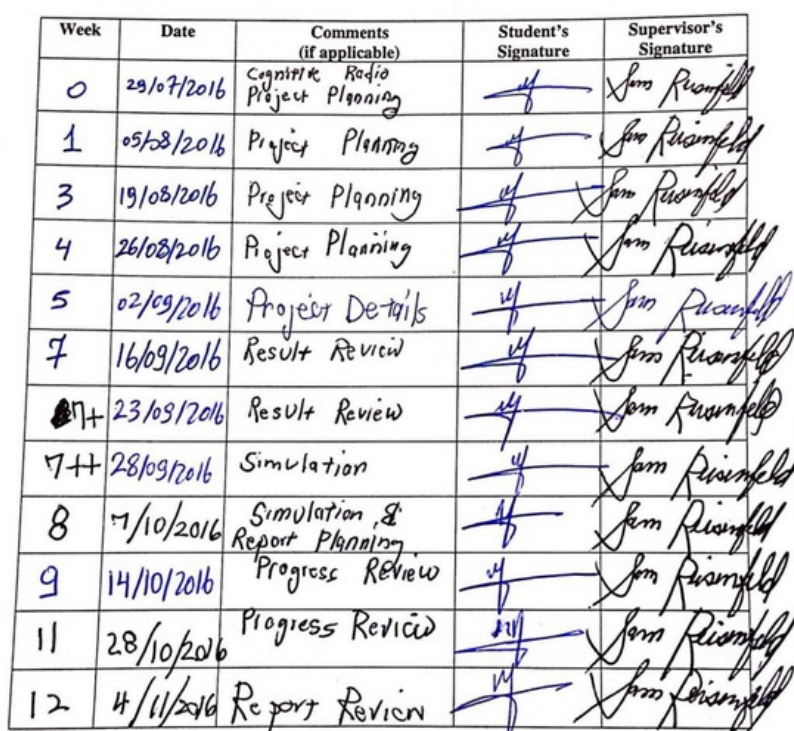 Week Date Comments (if applicable) Student's Signature Supervisor's Signature
0 29/07/2016 Cognitive Radio
Project Planning Sam Reisenfeld
1 05/08/2016 Project Planning Sam Reisenfeld
3 19/08/2016 Project Planning Sam Reisenfeld
4 26/08/2016 Project Planning Sam Reisenfeld
5 02/09/2016 Project Details Sam Reisenfeld
7 16/09/2016 Result Review Sam Reisenfeld
7+ 23/09/2016 Result Review Sam Reisenfeld
7++ 28/09/2016 Simulation Sam Reisenfeld
8 7/10/2016 Simulation &
Report Planning Sam Reisenfeld
9 14/10/2016 Progress Review Sam Reisenfeld
11 28/10/2016 Progress Review Sam Reisenfeld
12 4/11/2016 Report Review Sam Reisenfeld